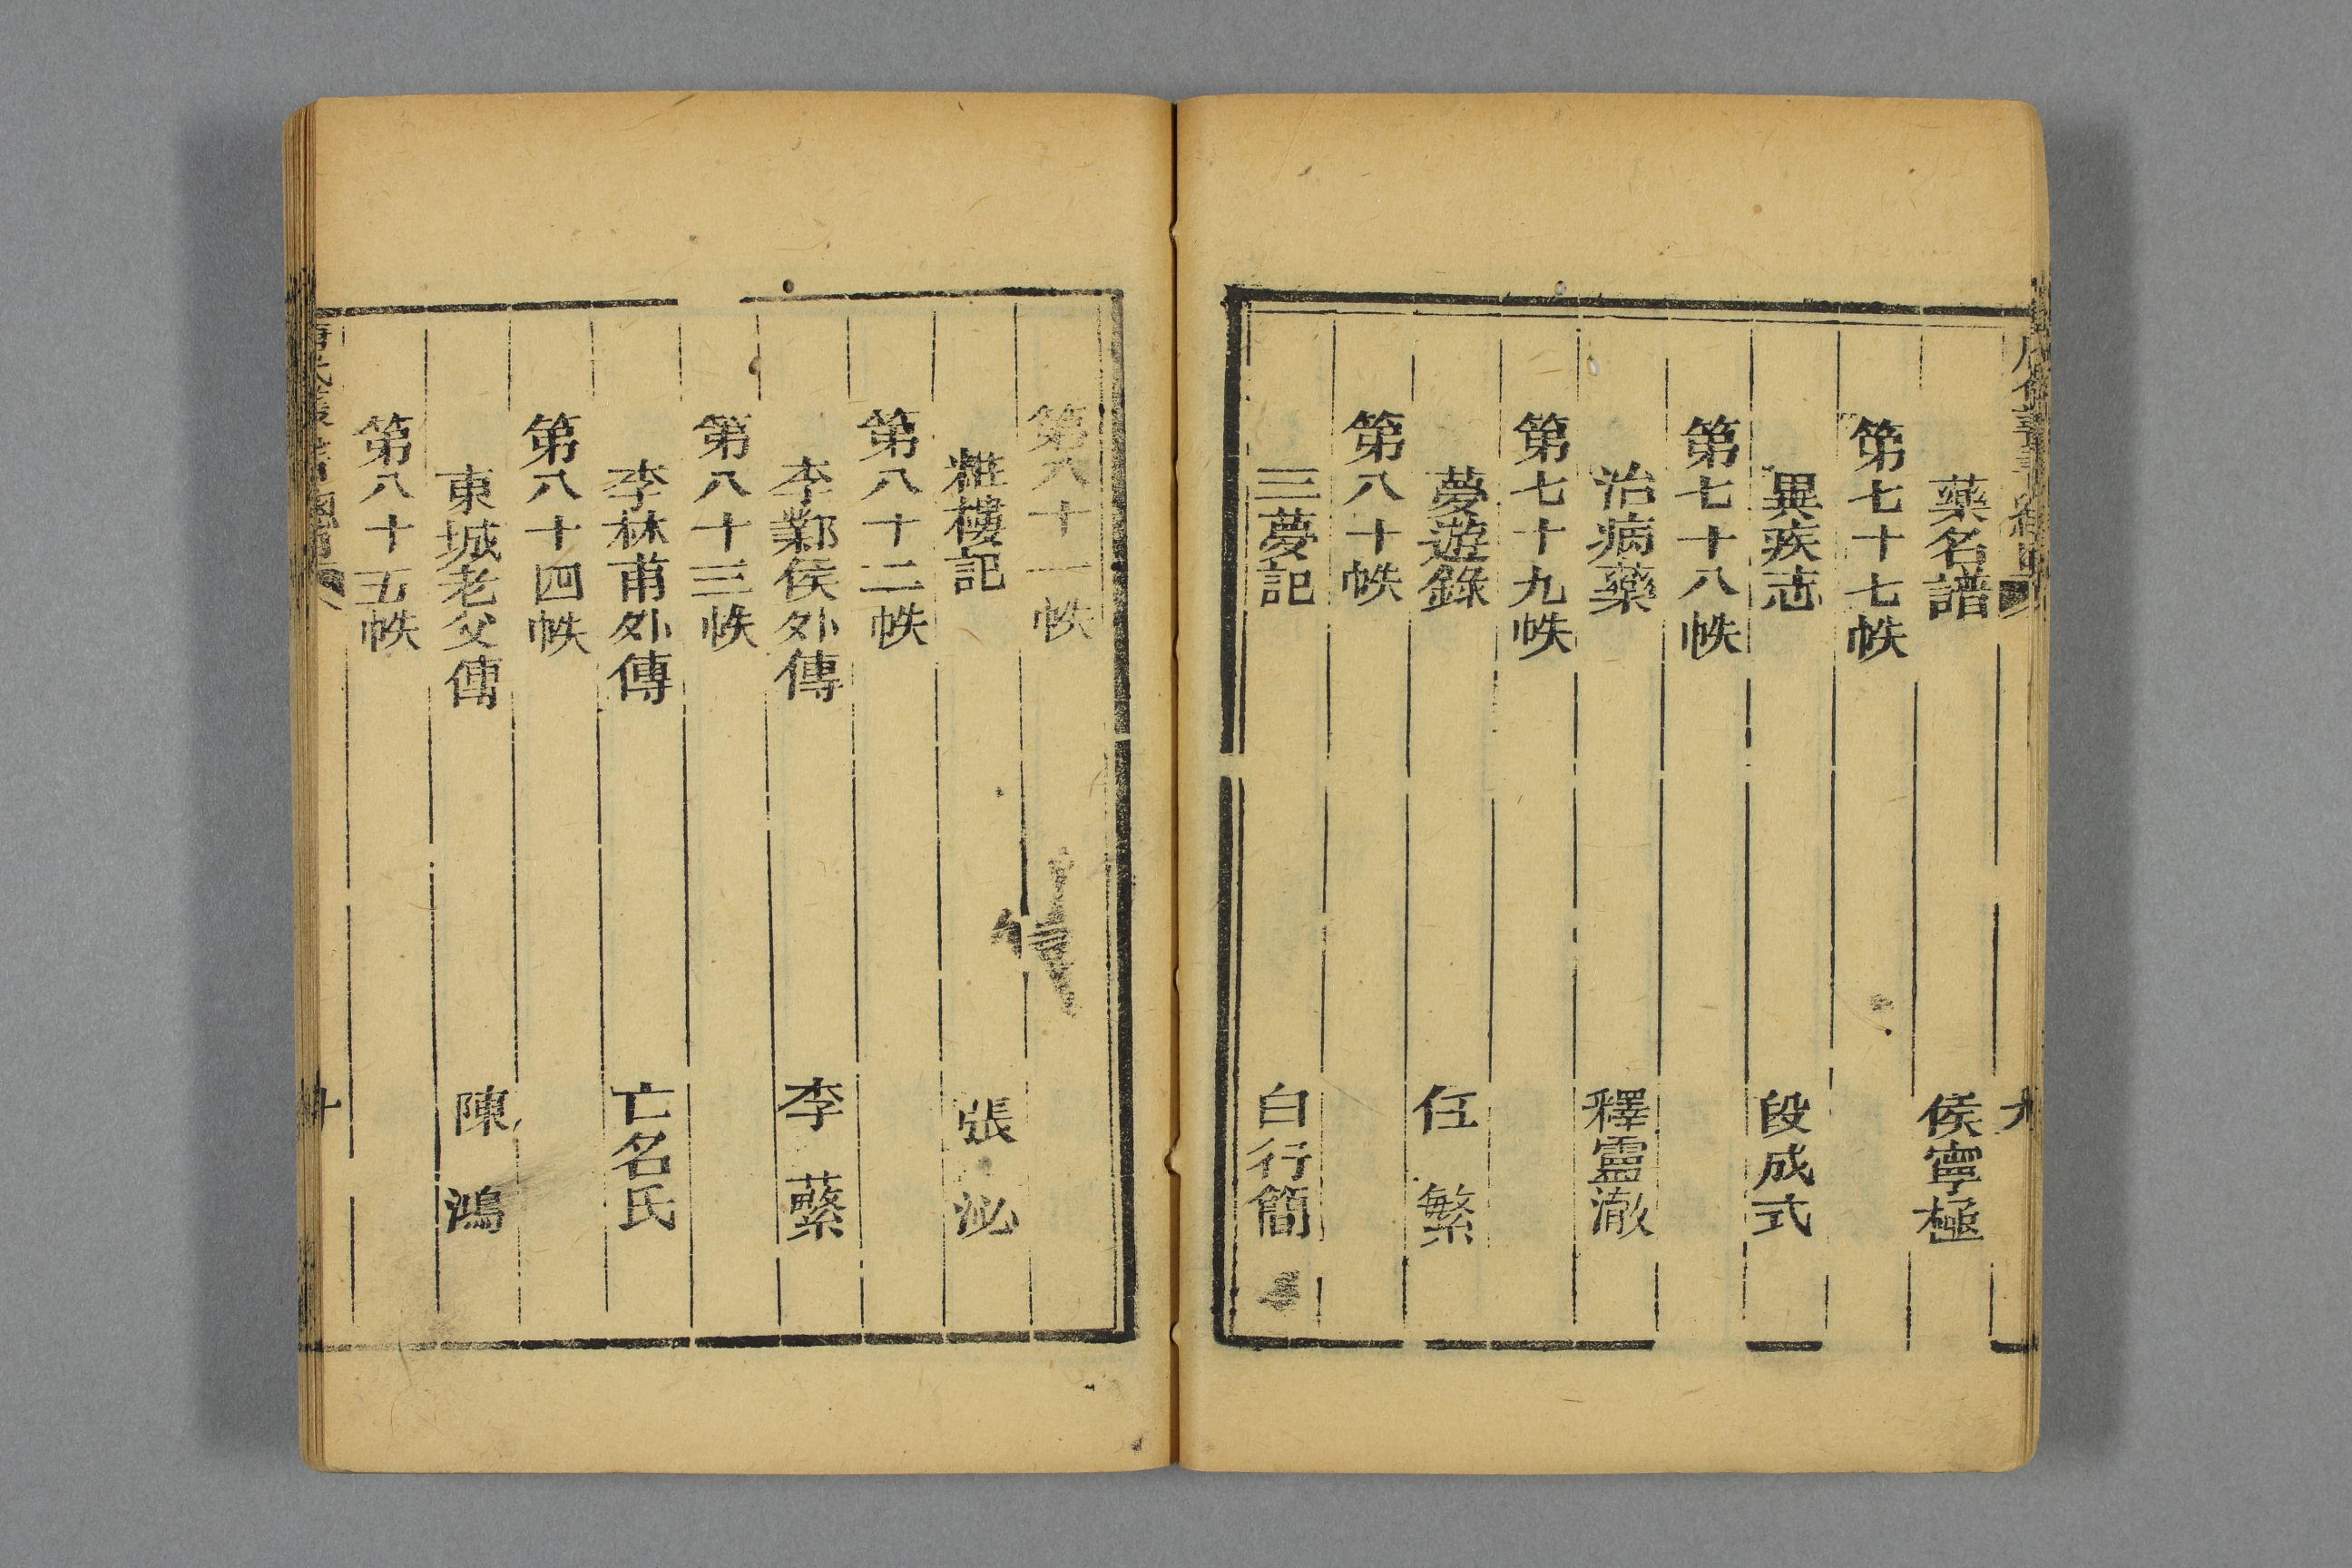 藥名譜 侯寧極
第七十七帙
異疾志 段成式
第七十八帙
治病藥 釋靈澈
第七十九帙
夢遊錄 任繁
第八十帙
三夢記 白行簡
第八十一帙
粧樓記 張泌
第八十二帙
李鄴侯外傳 李蘩
第八十三帙
李林甫外傳 亡名氏
第八十四帙
東城老父傳 陳鴻
第八十五帙